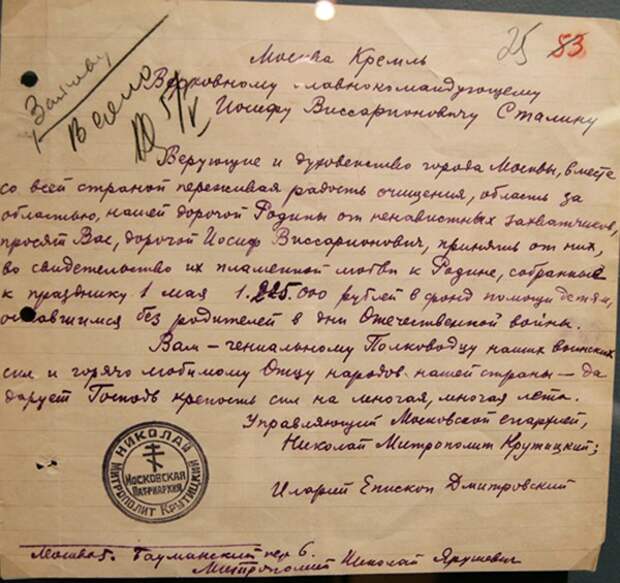 25 83
Москва Кремль
Верховному Главнокомандующему
Иосифу Виссарионовичу Сталину
Верующие и духовенство города Москвы, вместе
со всей страной переживая радость очищения, область за
областью, нашей дорогой Родины от ненавистных захватчиков,
просят Вас, дорогой Иосиф Виссарионович, принять от них,
во свидетельство их пламенной любви к Родине, собранные
к празднику 1 мая 1.225.000 рублей в фонд помощи детям,
оставшимся без родителей в дни Отечественной войны.
Вам – гениальному Полководцу наших воинских
сил и горячо любимому Отцу народов нашей страны – да
дарует Господь крепость сил на многая, многая лета.
Управляющий Московской епархией,
Николай Митрополит Крутицкий;
Иларий Епископ Дмитровский
НИКОЛАЙ
МИТРОПОЛИТ КРУТИЦКИЙ
МОСКОВСКАЯ
ПАТРИАРХИЯ
Москва Бауманский пер 6.
Митрополит Николай Ярушевич